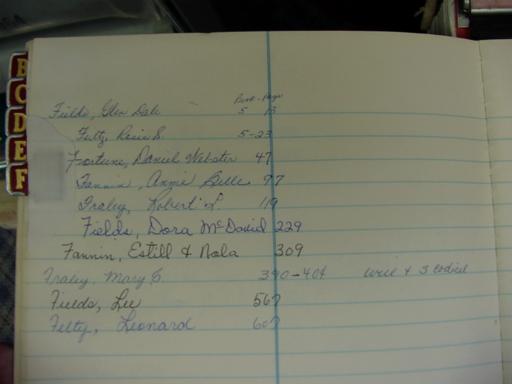 B
C
D
E
F
Book - Page
Fields, Glen Dale 5 13
Felty, Rosie S. 5-23
Fortune, Daniel Webster 47
Fannin, Annie Belle 97
Fraley, Robert L. 119
Fields, Dora McDavid 229
Fannin, Estill & Nola 309
Fraley, Mary C 390-404 Will &
Fields, Lee 567
Felty, Leonard 607